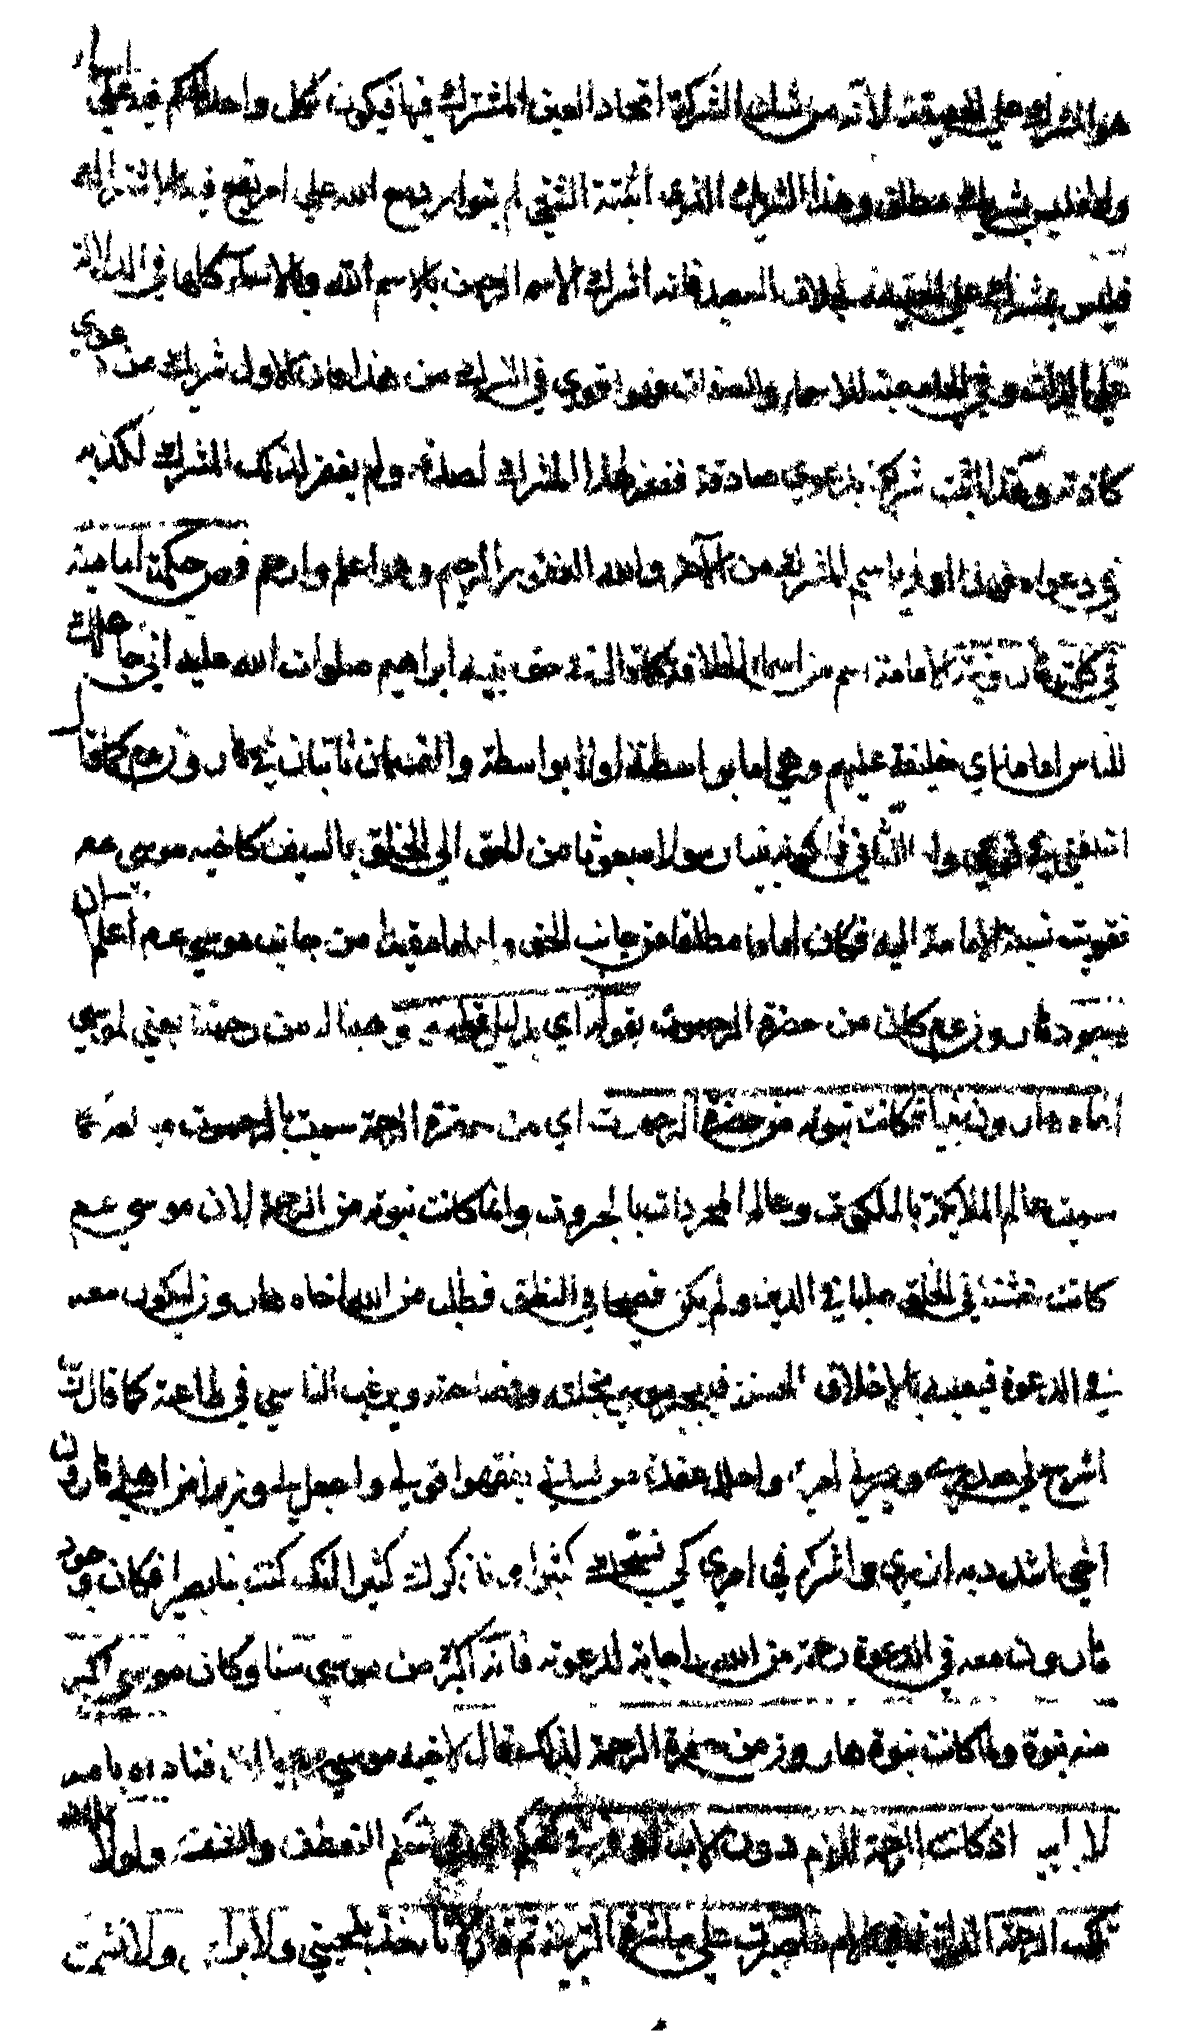 هو الشريك على الحقيقة لأنه من شأن الشركة اتحاد العين المشترك فيها فيكون لكل واحد الحكم فيه على
وليس شريك مطلق وهذا الشريك الذي أثبته الشقي لم يتوارد مع الله على أمر يقع فيه الاشتراك
فليس بشريك على الحقيقة بخلاف السعيد فإنه أشرك الاسم الرحمن بالاسم الله وبالأسماء كلها في الدلالة
على الذات وفي الجامعية للأسماء والصفات فهو أقوى في الشرك من هذا فإن الأول شريك من دعوى
كاذبة وهذا أثبت شريكا بدعوى صادقة فغفر لهذا المشرك لصدقه ولم يغفر لذلك المشرك لكذبه
في دعواه فهذا أولى باسم المشرك من الآخر والله الغفور الرحيم وهو أعلم وأرحم فص حكمة إمامية
في كلمة هارونية الإمامة اسم من أسماء الخلافة كما قال في حق نبيه إبراهيم صلوات الله عليه إني جاعلك
للناس إماما أي خليفة عليهم وهي إما بواسطة أو لا بواسطة والقسمان ثابتان في هارون عم كما قا
اخلفني في قومي ولـ الثاني في كونه نبيا رسولا مبعوثا من الحق إلى الخلق بالسيف كأخيه موسى معه
فقويت نسبة الإمامة إليه فكان إماما مطلقا من جانب الحق وإماما مقيدا من جانب موسى عم اعلم ان
وجود هارون عم كان من حضرة الرحموت بقوله أي بدليل قوله ووهبنا له من رحمتنا يعني لموسى
أخاه هارون نبيا فكانت نبوته من حضرة الرحموت أي من حضرة الرحمة سميت بالرحموت مبالغة كما
سميت عالم الملائكة بالملكوت وعالم المجردات بالجبروت وإنما كانت نبوته من الرحمة لأن موسى عم
كانت نشأته في الخلق صلبا في الدين ولم يكن فصيحا في النطق فطلب من الله أخاه هارون ليكون معه
في الدعوة فيعينه بالأخلاق الحسنة فيه موسى بخلقه وفصاحته ويرغب الناس في طاعته كما قال رب
اشرح لي صدري ويسر لي أمري واحلل عقدة من لساني يفقهوا قولي واجعل لي وزيرا من أهلي هارون
أخي اشدد به أزري وأشركه في أمري كي نسبحك كثيرا ونذكرك كثيرا إنك كنت بنا بصيرا فكان وجود
هارون معه في الدعوة رحمة من الله إجابة لدعوته فإنه أكبر من موسى سنا وكان موسى أكبر
منه نبوة ولما كانت نبوة هارون من حضرة الرحمة لذلك قال لأخيه موسى يا ابن فناداه بأمه
لا بأبيه إذ كانت الرحمة للأم دون الأب أوفر في الحكم أي في حكم التعطف والشفقة ولولا تلك
تلك الرحمة الذاتية ما صبرت على مباشرة التربية ثم قال لا تأخذ بلحيتي ولا برأسي ولا تشمت